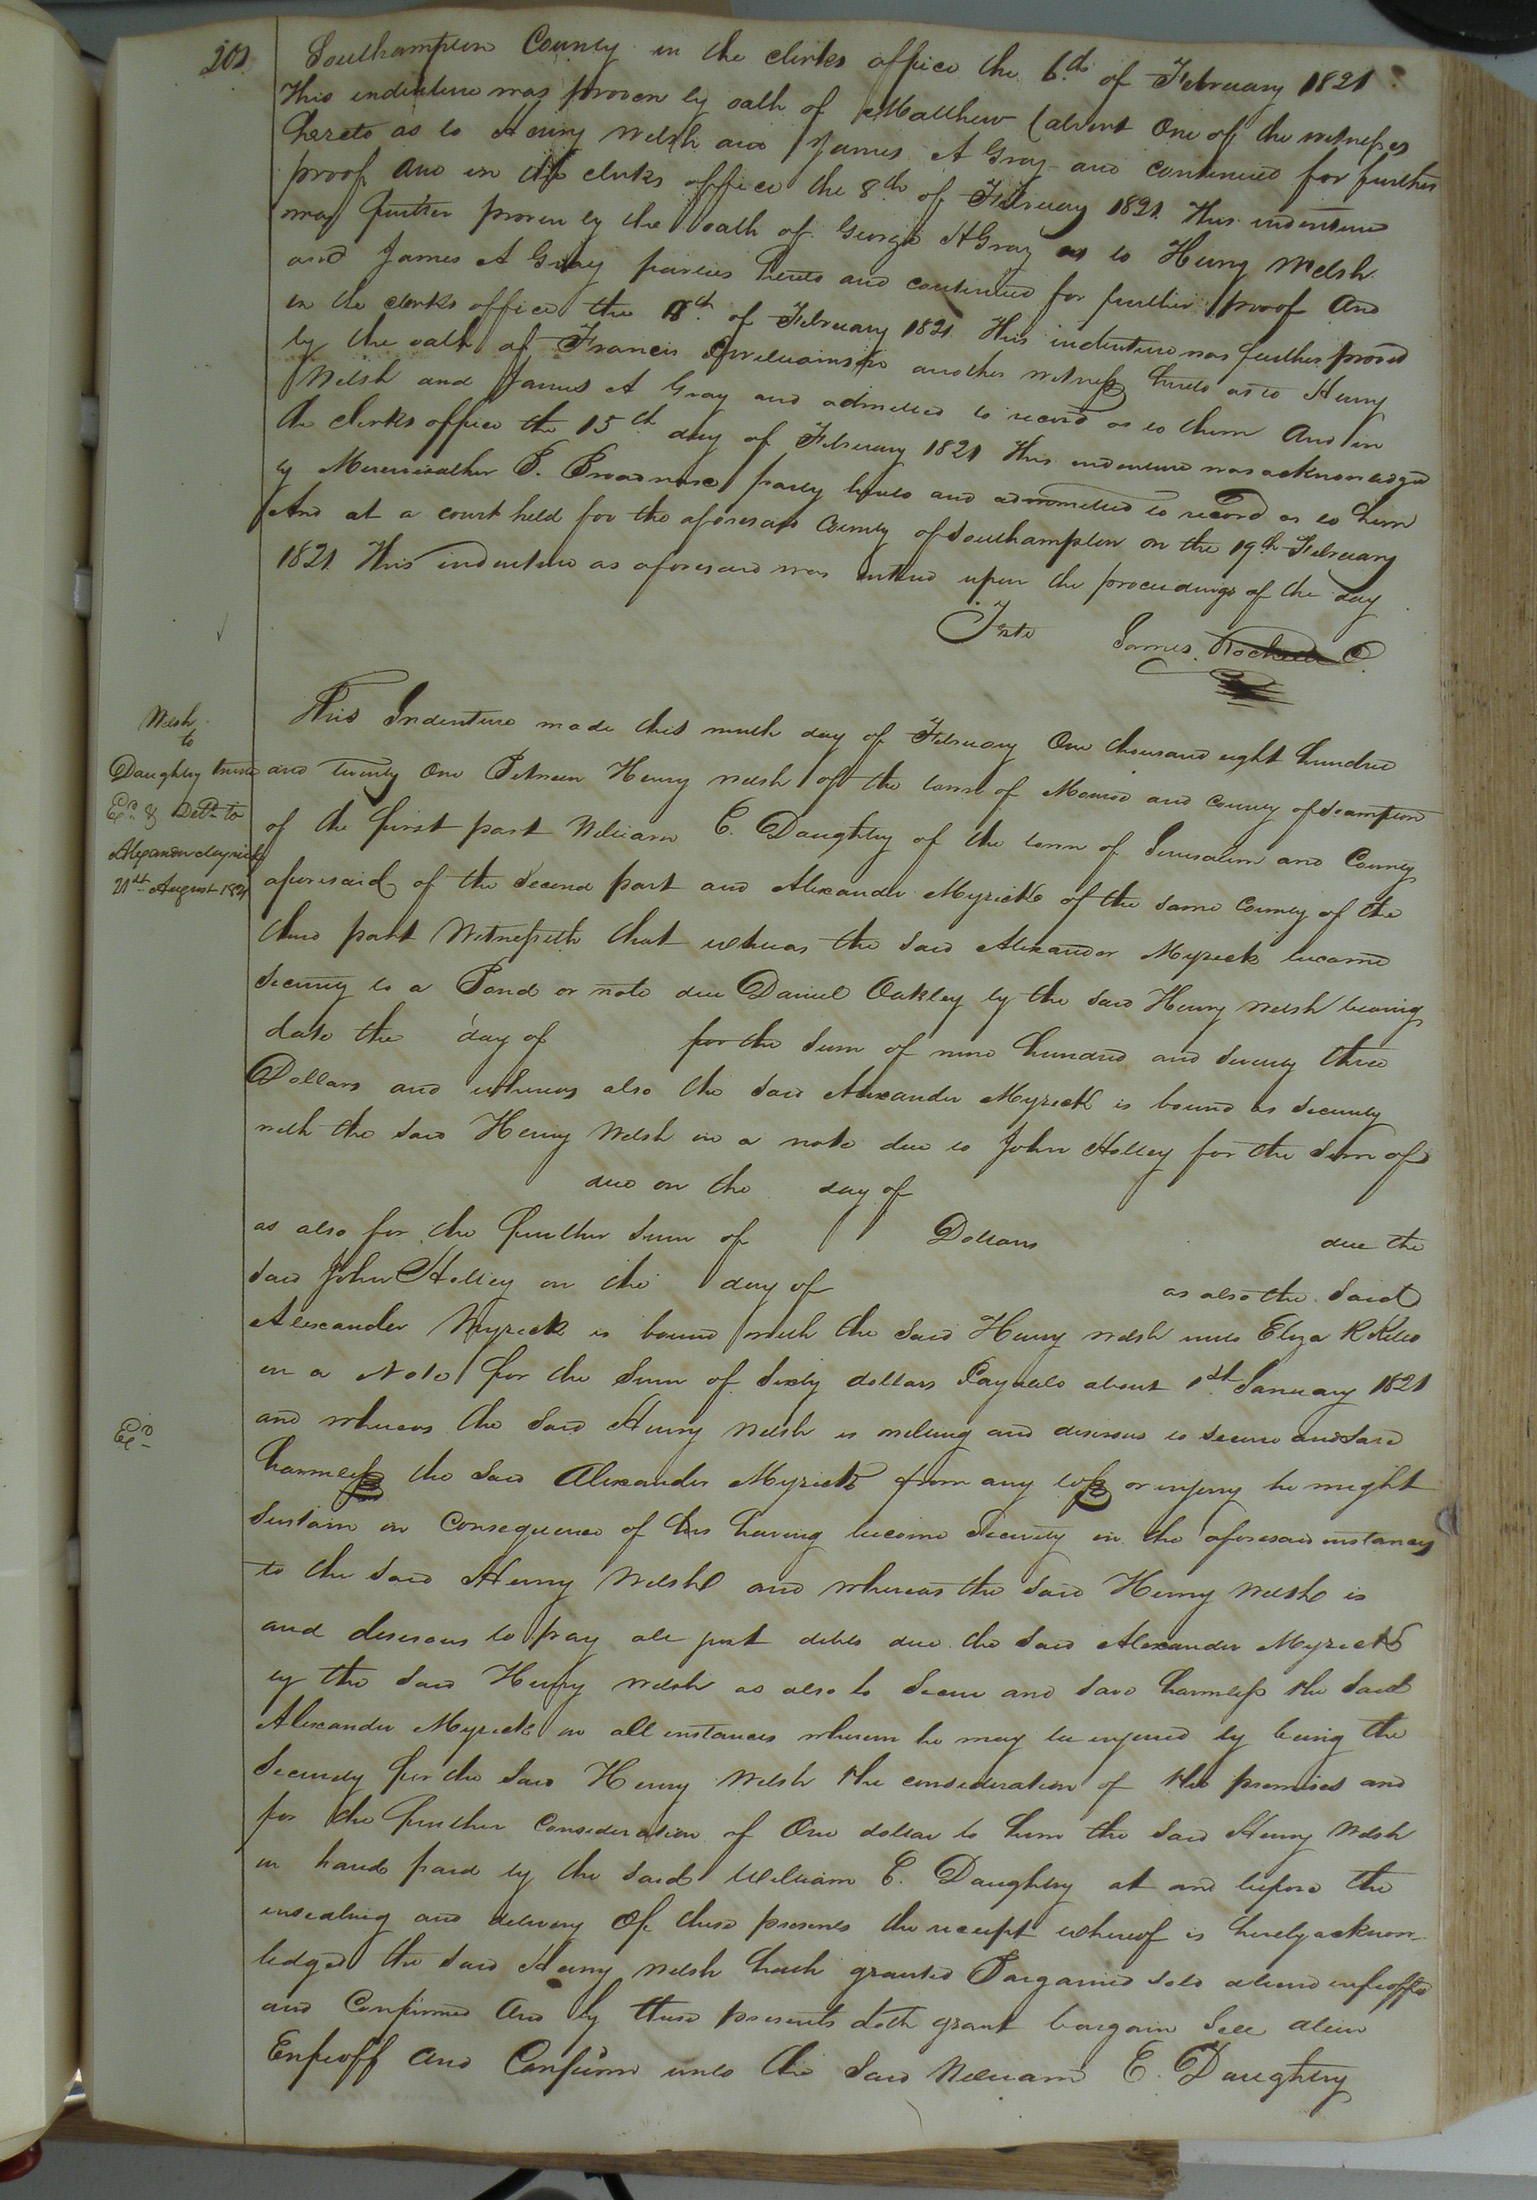 201
Southampton County in the clerks office the 6th of February 1821
This indenture was proven by oath of Matthew Calvert One of the witnesses
hereto as to Henry Welsh and James A Gray and continued for further
proof And in the clerks office the 8th of February 1821 This indenture
was further proven by the oath of George H Gray as to Henry Welsh
and James A Gray parties hereto and continued for further proof And
in the clerks office the 8th of February 1821 This indenture was further proved
by the oath of Francis Williamson another witness hereto as to Henry
Welsh and James A Gray and admitted to record as to them And in
the clerks office the 15th day of February 1821 This indenture was acknowledged
by Merriweather B. Broadnax party hereto and admitted to record as to him
And at a court held for the aforesaid County of Southampton on the 19th February
1821 This indenture as aforesaid was entered upon the proceedings of the day
Teste James Rochelle C.
Welsh
to
Daughtry trustee
Exd & Deld to
Alexander Myrick
21st August 1821
This Indenture made this ninth day of February One thousand eight hundred
and twenty One Between Henry Welsh of the town of Monroe and county of Southampton
of the first part William E. Daughtry of the town of Jerusalem and County
aforesaid of the Second part and Alexander Myrick of the same County of the
third part Witnesseth that whereas the said Alexander Myrick became
Security to a Bond or note due Daniel Oakley by the said Henry Welsh bearing
date the day of for the sum of nine hundred and seventy three
Dollars and whereas also the said Alexander Myrick is bound as security
with the said Henry Welsh in a note due to John Holley for the sum of
due on the day of
as also for the further sum of Dollars due the
said John Holley on the day of as also the said
Alexander Myrick is bound with the said Henry Welsh unto Eliza R
in a Note for the sum of Sixty dollars Payable about 1st January 1821
Exd
and whereas the said Henry Welsh is willing and desirous to secure and save
harmless the said Alexander Myrick from any loss or injury he might
Sustain in Consequence of his having become Security in the aforesaid instances
to the said Henry Welsh and whereas the said Henry Welsh is
and desirous to pay all just debts due the said Alexander Myrick
by the said Henry Welsh as also to Secure and save harmless the said
Alexander Myrick in all instances wherein he may be injured by being the
Security for the said Henry Welsh the consideration of the premises and
for the further consideration of One dollar to him the said Henry Welsh
in hand paid by the said William E. Daughtry at and before the
ensealing and delivery Of these presents the receipt whereof is hereby acknow-
ledged the said Henry Welsh hath granted Bargained sold aliend enfeoffed
and Confirmed And by these presents doth grant bargain Sell alien
Enfeoff And Confirm unto the said William E. Daughtry